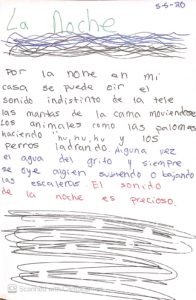 5-5-20
La Noche
Por la noche en mi
casa se puede oir el
sonido indistinto de la tele
las mantas de la cama moviendose
Los animales como las palomas
haciendo "hu, hu, hu y los
perros ladrando. Alguna vez
el agua del grifo y siempre
se oye alguien subiendo o bajando
las escaleras. El sonido
de la noche es precioso.